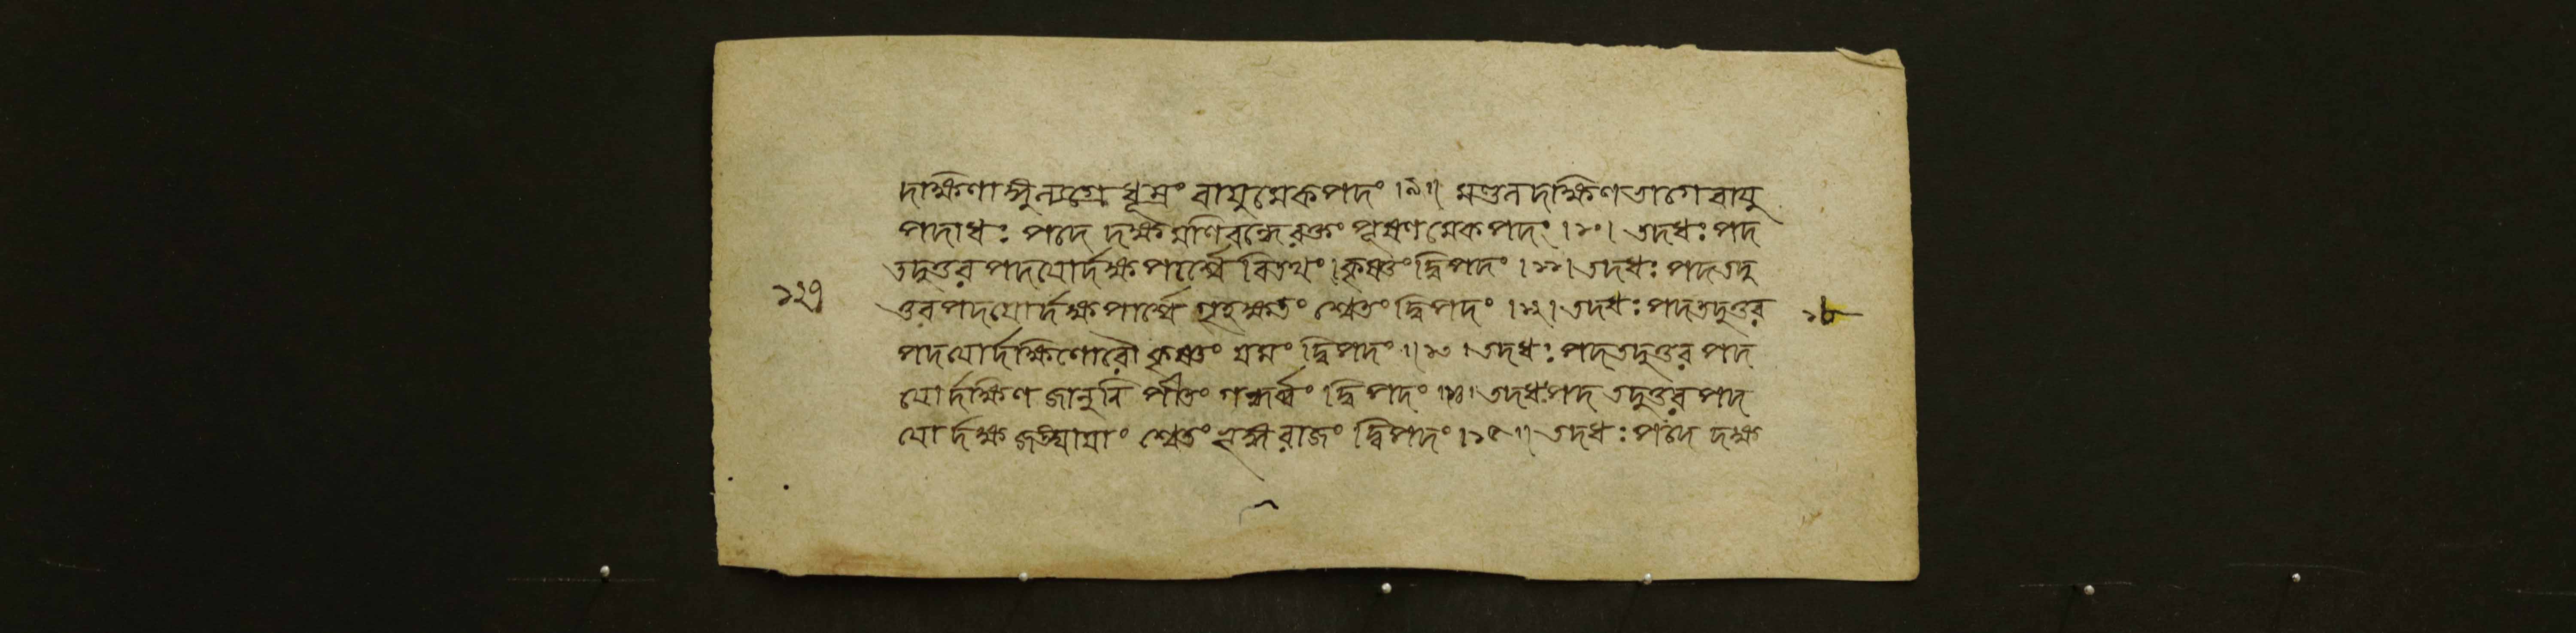 দক্ষিণাঙ্গুল্যগ্রে ধূম্রং বায়ুমেকপদং ।৯॥ মণ্ডলদক্ষিণভাগে বায়ু
পদাধঃ পদে দক্ষমণিবন্ধে রক্তং পূষণমেকপদং ।১০। তদধঃ পদ
তদুত্তরপদয়োর্দক্ষপার্শ্বে বিতথং কৃষ্ণং দ্বিপদং ।১১। তদধঃ পদতদু
১২৭
ত্তরপদয়োর্দক্ষপার্শ্বে গৃহক্ষতং শ্বেতং দ্বিপদং ।১২। তদধঃ পদতদুত্তর
১৮
পদয়োর্দক্ষিণোরৌ কৃষ্ণং যমং দ্বিপদং ॥১৩। তদধঃ পদতদুত্তরপদ
য়োর্দক্ষিণজানুনি পীতং গন্ধর্ব্বং দ্বিপদং ।১৪। তদধঃপদ তদুত্তরপদ
য়োর্দক্ষজঙ্ঘায়াং শ্বেতং ভৃঙ্গরাজং দ্বিপদং ।১৫॥ তদধঃ পদে দক্ষ